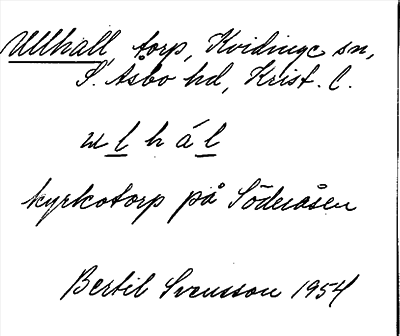 Ullhall, torp, Kvidinge sn,
S. Åsbo hd, Krist. l.
u l h á l
kyrkotorp på Söderåsen
Bertil Svensson 1954